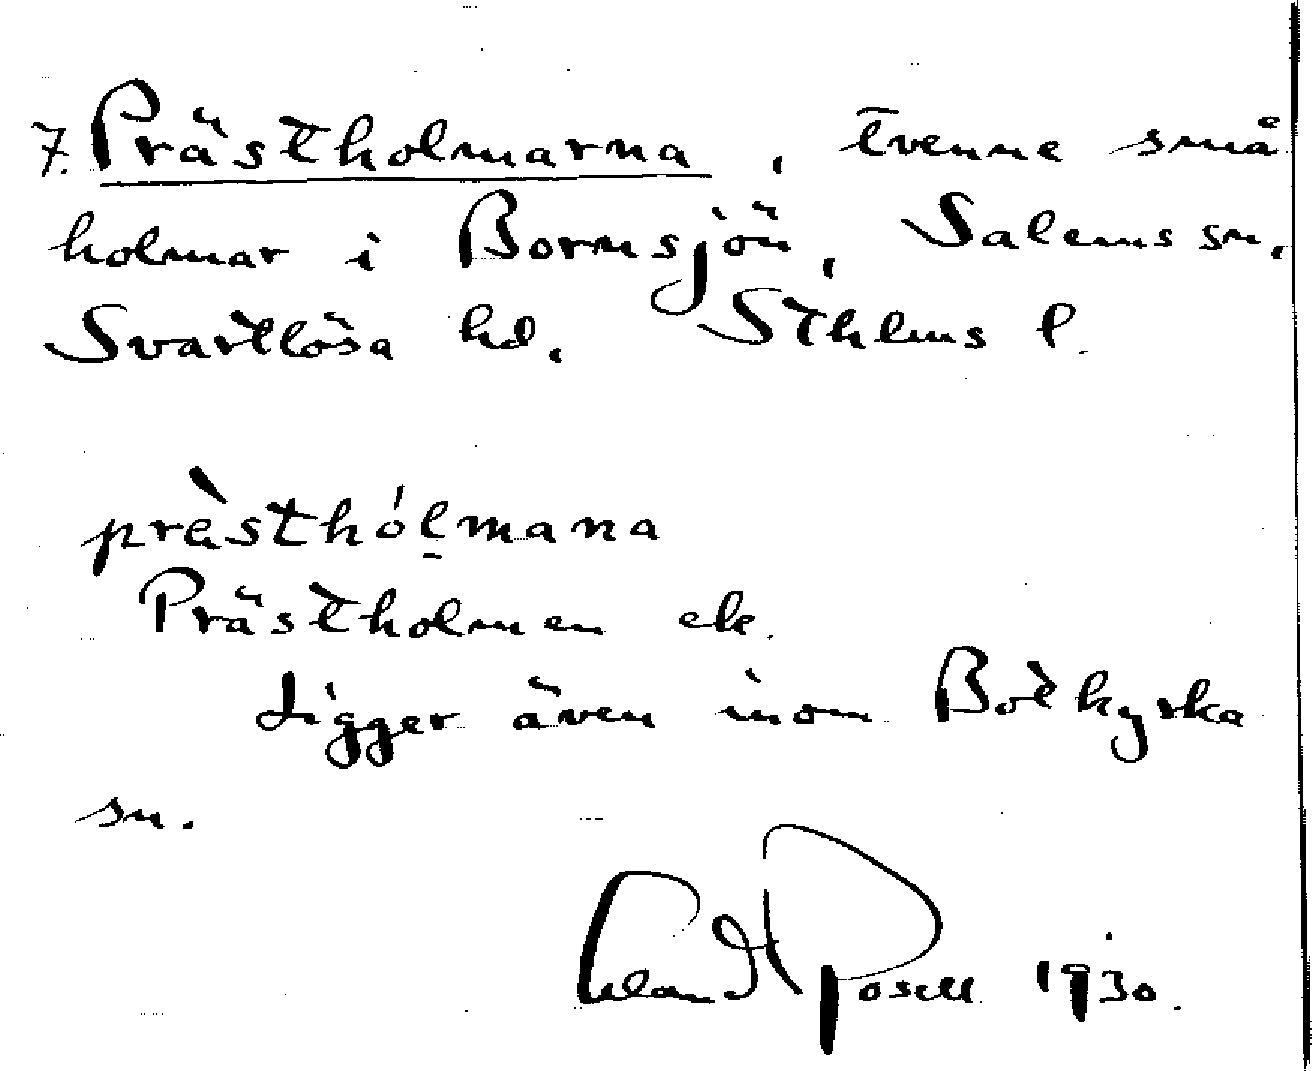 7. Prästholmarna, tvenne små
holmar i Bornsjön, Salems sn.
Svartlösa hd. Sthlms l.
prà̈sthól̠mana
Prästholmen ek.
Ligger även inom Botkyrka
sn.
1930.